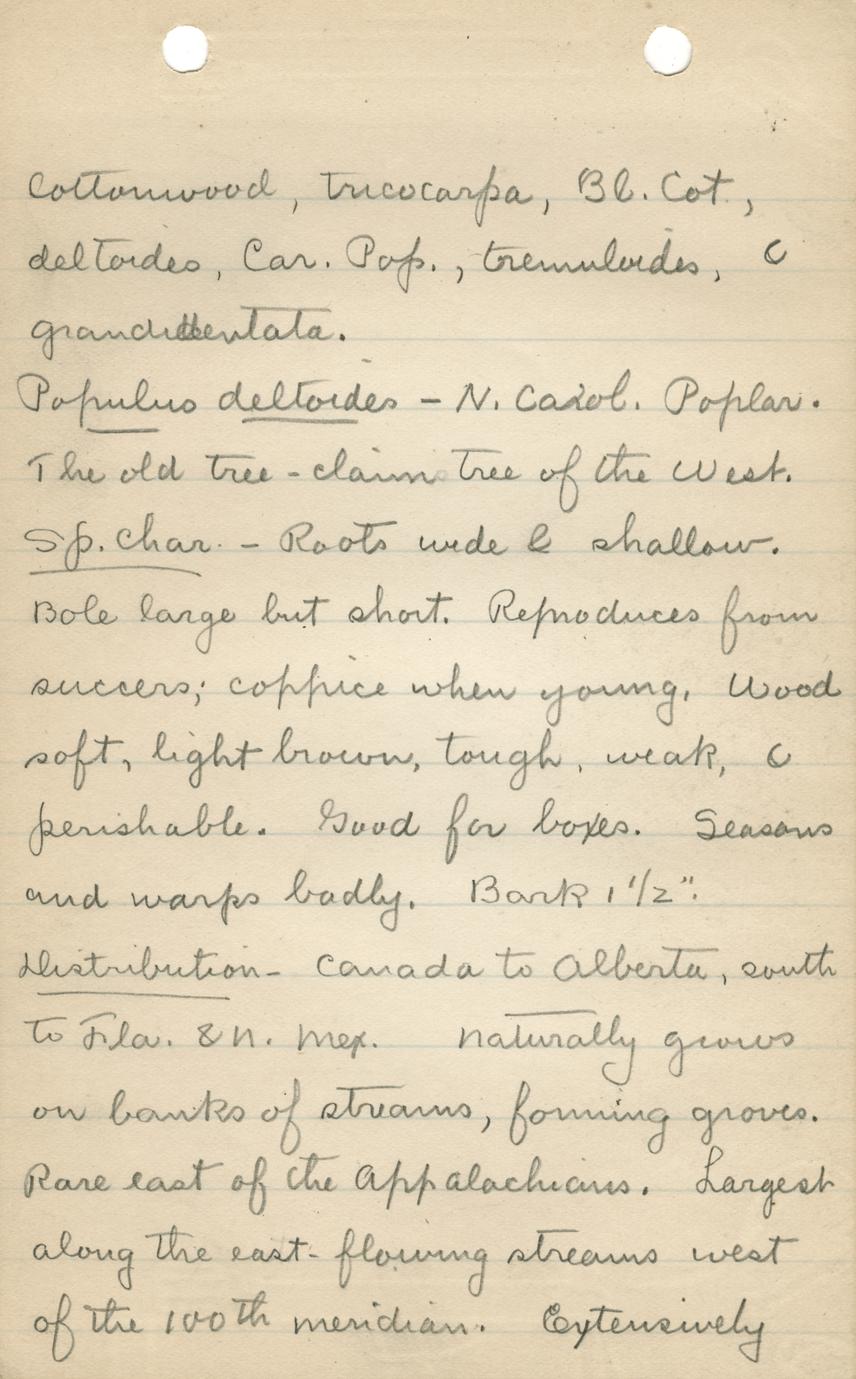 Cottonwood, tricocarpa, Bl. Cot.,
deltoides, Car. Pop., tremuloides, &
grandidentata.
Populus deltoides – N. Carol. Poplar.
The old tree-claim tree of the West.
Sp. Char. – Roots wide & shallow.
Bole large but short. Reproduces from
succers; coppice when young. Wood
soft, light brown, tough, weak, &
perishable. Good for boxes. Seasons
and warps badly. Bark 1 1/2".
Distribution – Canada to Alberta, south
to Fla. & N. Mex. Naturally grows
on banks of streams, forming groves.
Rare east of the Appalachians. Largest
along the east-flowing streams west
of the 100th meridian. Extensively